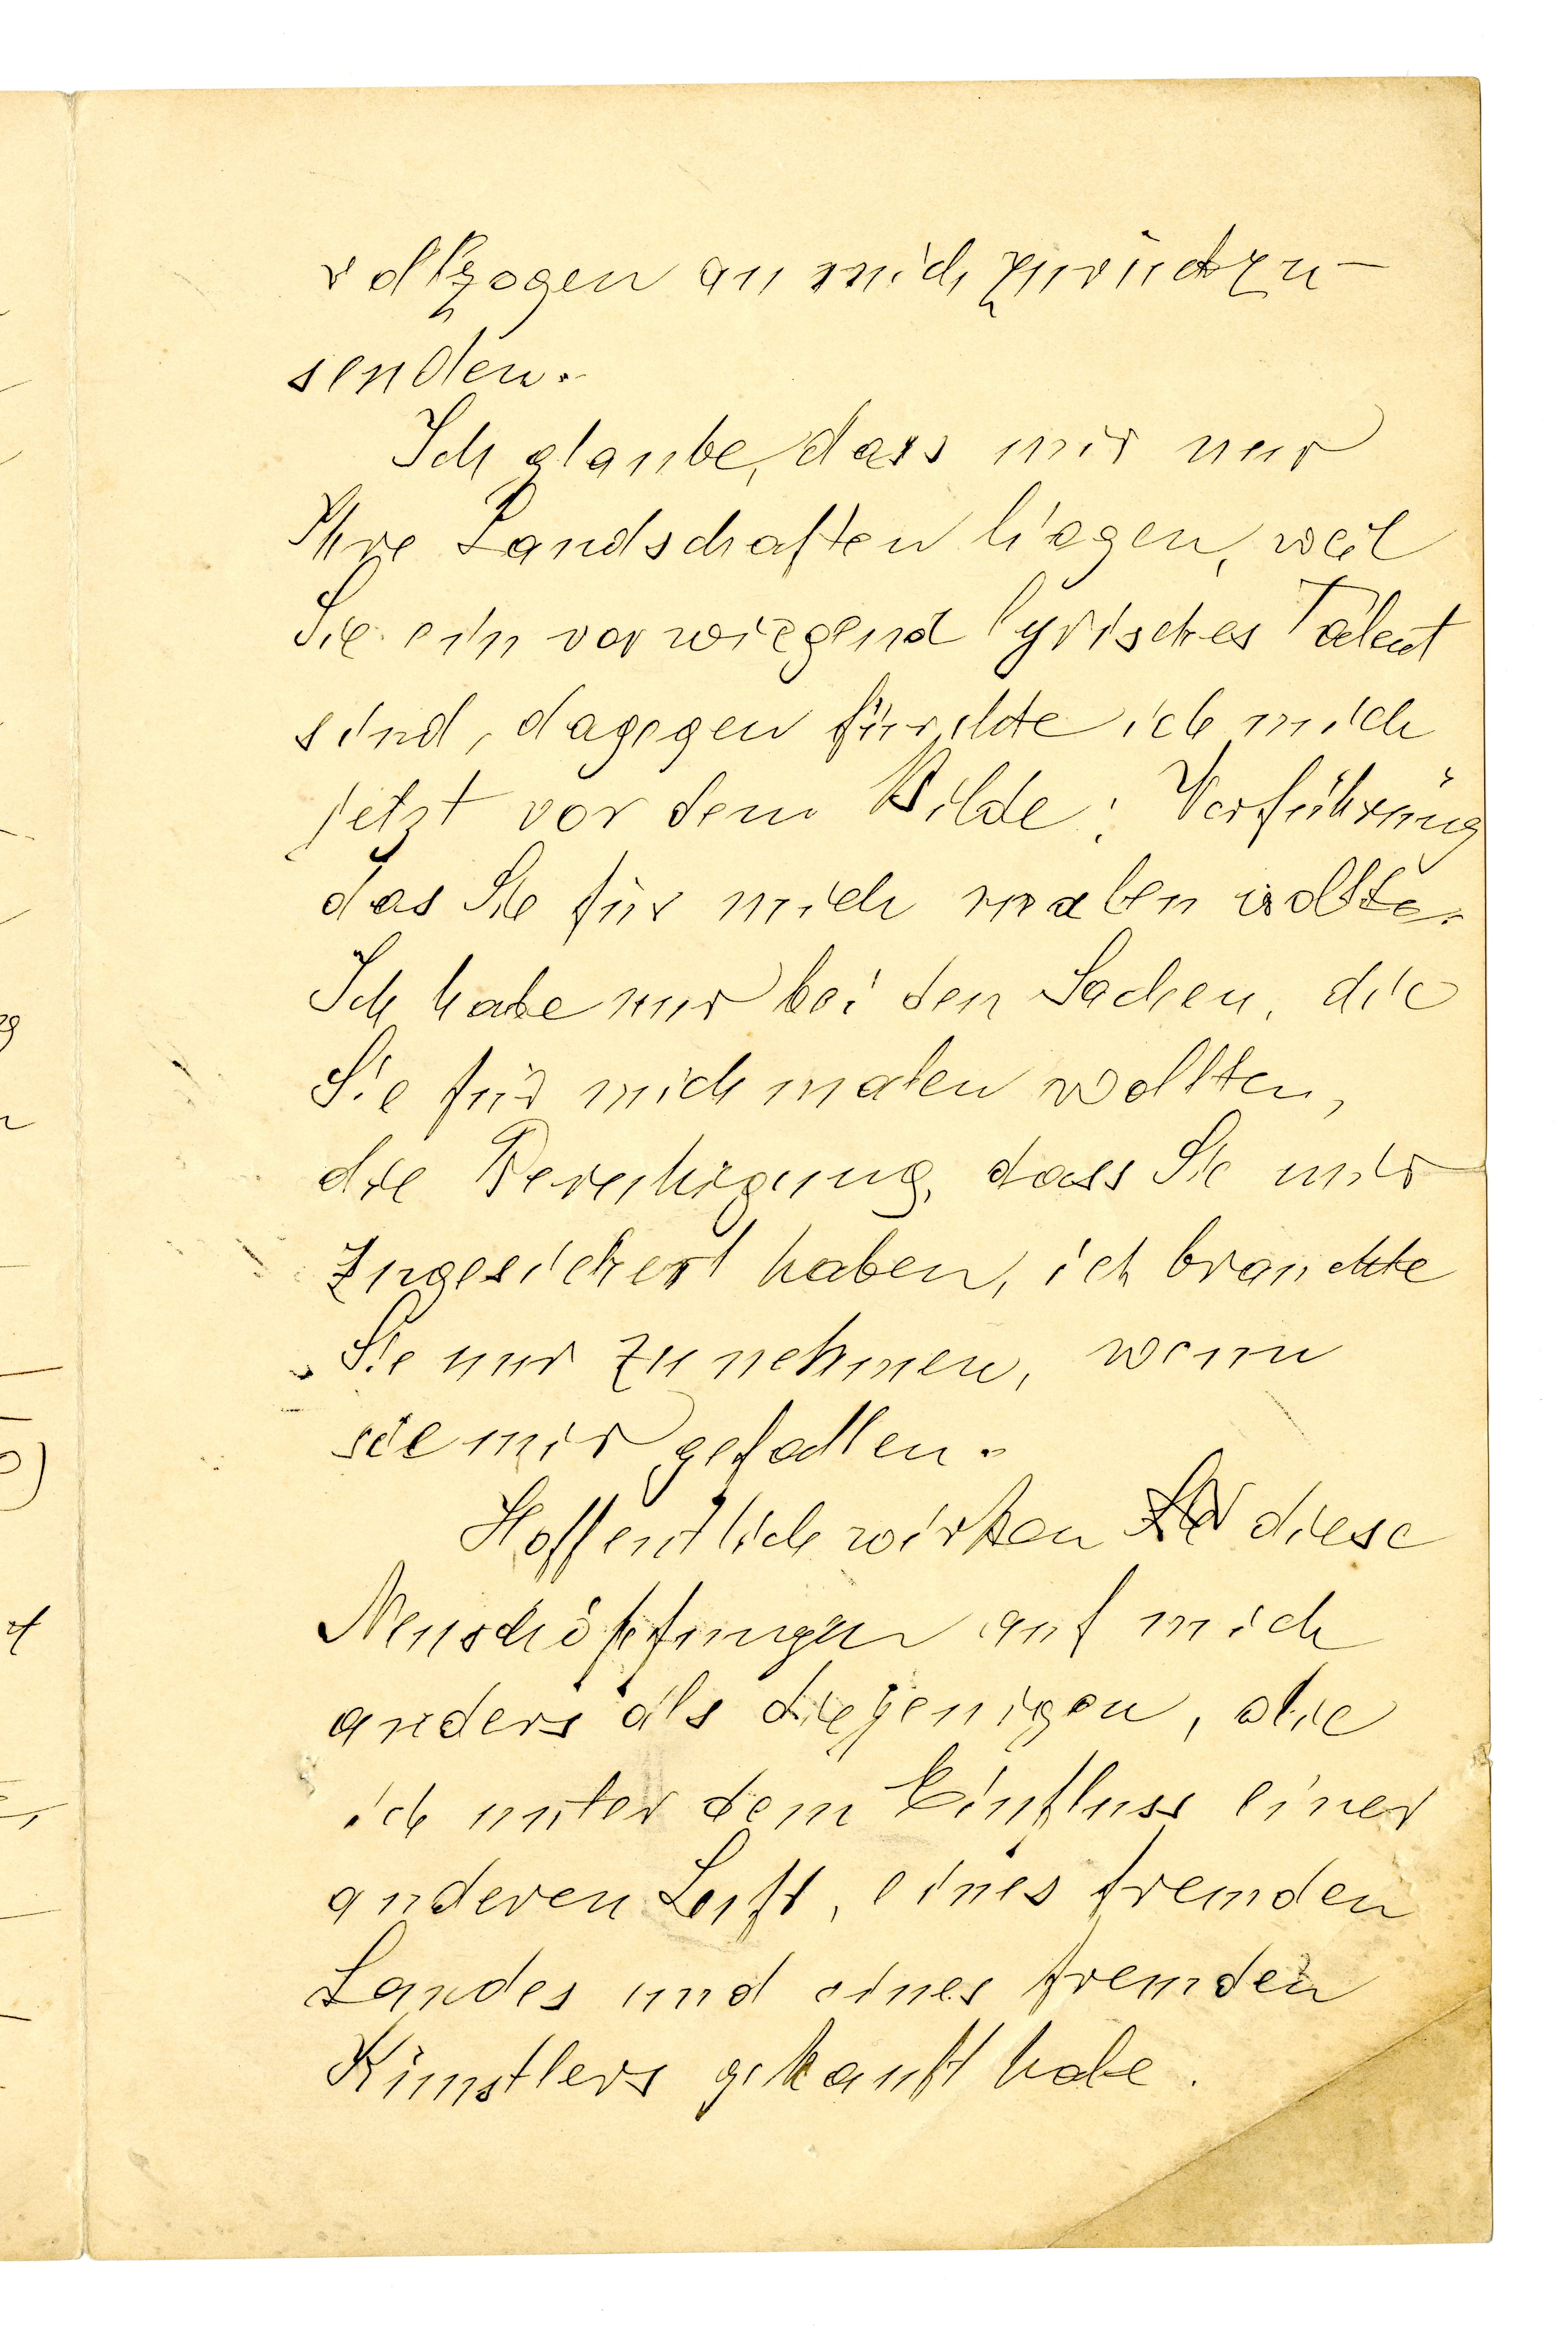 vollzogen an mich zurückzu-
senden.
Ich glaube, dass mir nur
Ihre Landschaften liegen, weil
Sie ein vorwiegend lyrisches Talent
sind, dagegen fürchte ich mich
jetzt vor dem Bilde: Verführung
das Sie für mich malen
Ich habe nur bei den Sachen, die
Sie für mich malen wollten,
die dass Sie mir
zugesichert haben, ich brauchte
Sie nur zu nehmen, wenn
sie mir gefallen.
Hoffentlich wirken diese
Neuschöpfungen auf mich
anders als diejenigen, die
ich unter dem Einfluss einer
anderen Luft, eines fremden
Landes und eines fremden
Künstlers gekauft habe.